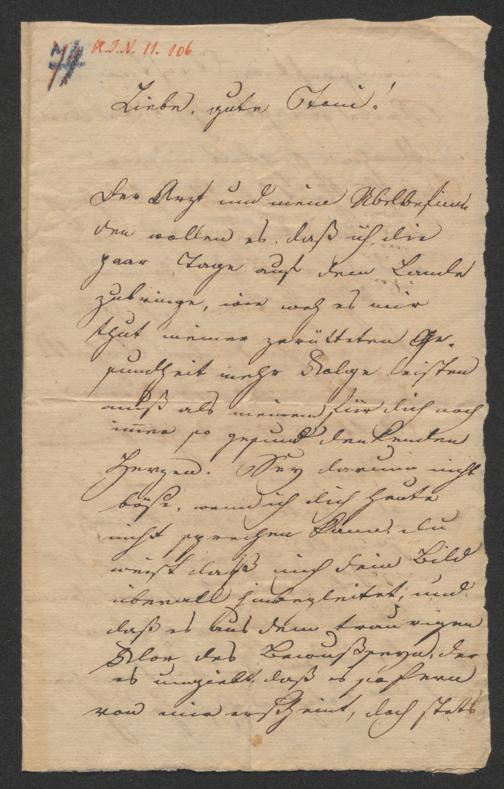 74 H.I.N. 11.106
Liebe, gute Toni!
Der Arzt und meine Übelbefin-
den wollen es, daß ich die
paar Tage auf dem Lande
zubringe, wie weh es mir
thut meiner zerütteten Ge-
sundheit mehr Folge leisten
muß als meinem für dich noch
immer so gesund denkenden
Herzen. Sey darum nicht
böse, wenn ich dich heute
nicht sprechen kann, du
weißt daß mich dein Bild
überall hinbegleitet, und
daß es aus dem traurigen
Flor des Bewußtseyn, der
es umgiebt, daß es so fern
von mir erscheint, doch stets